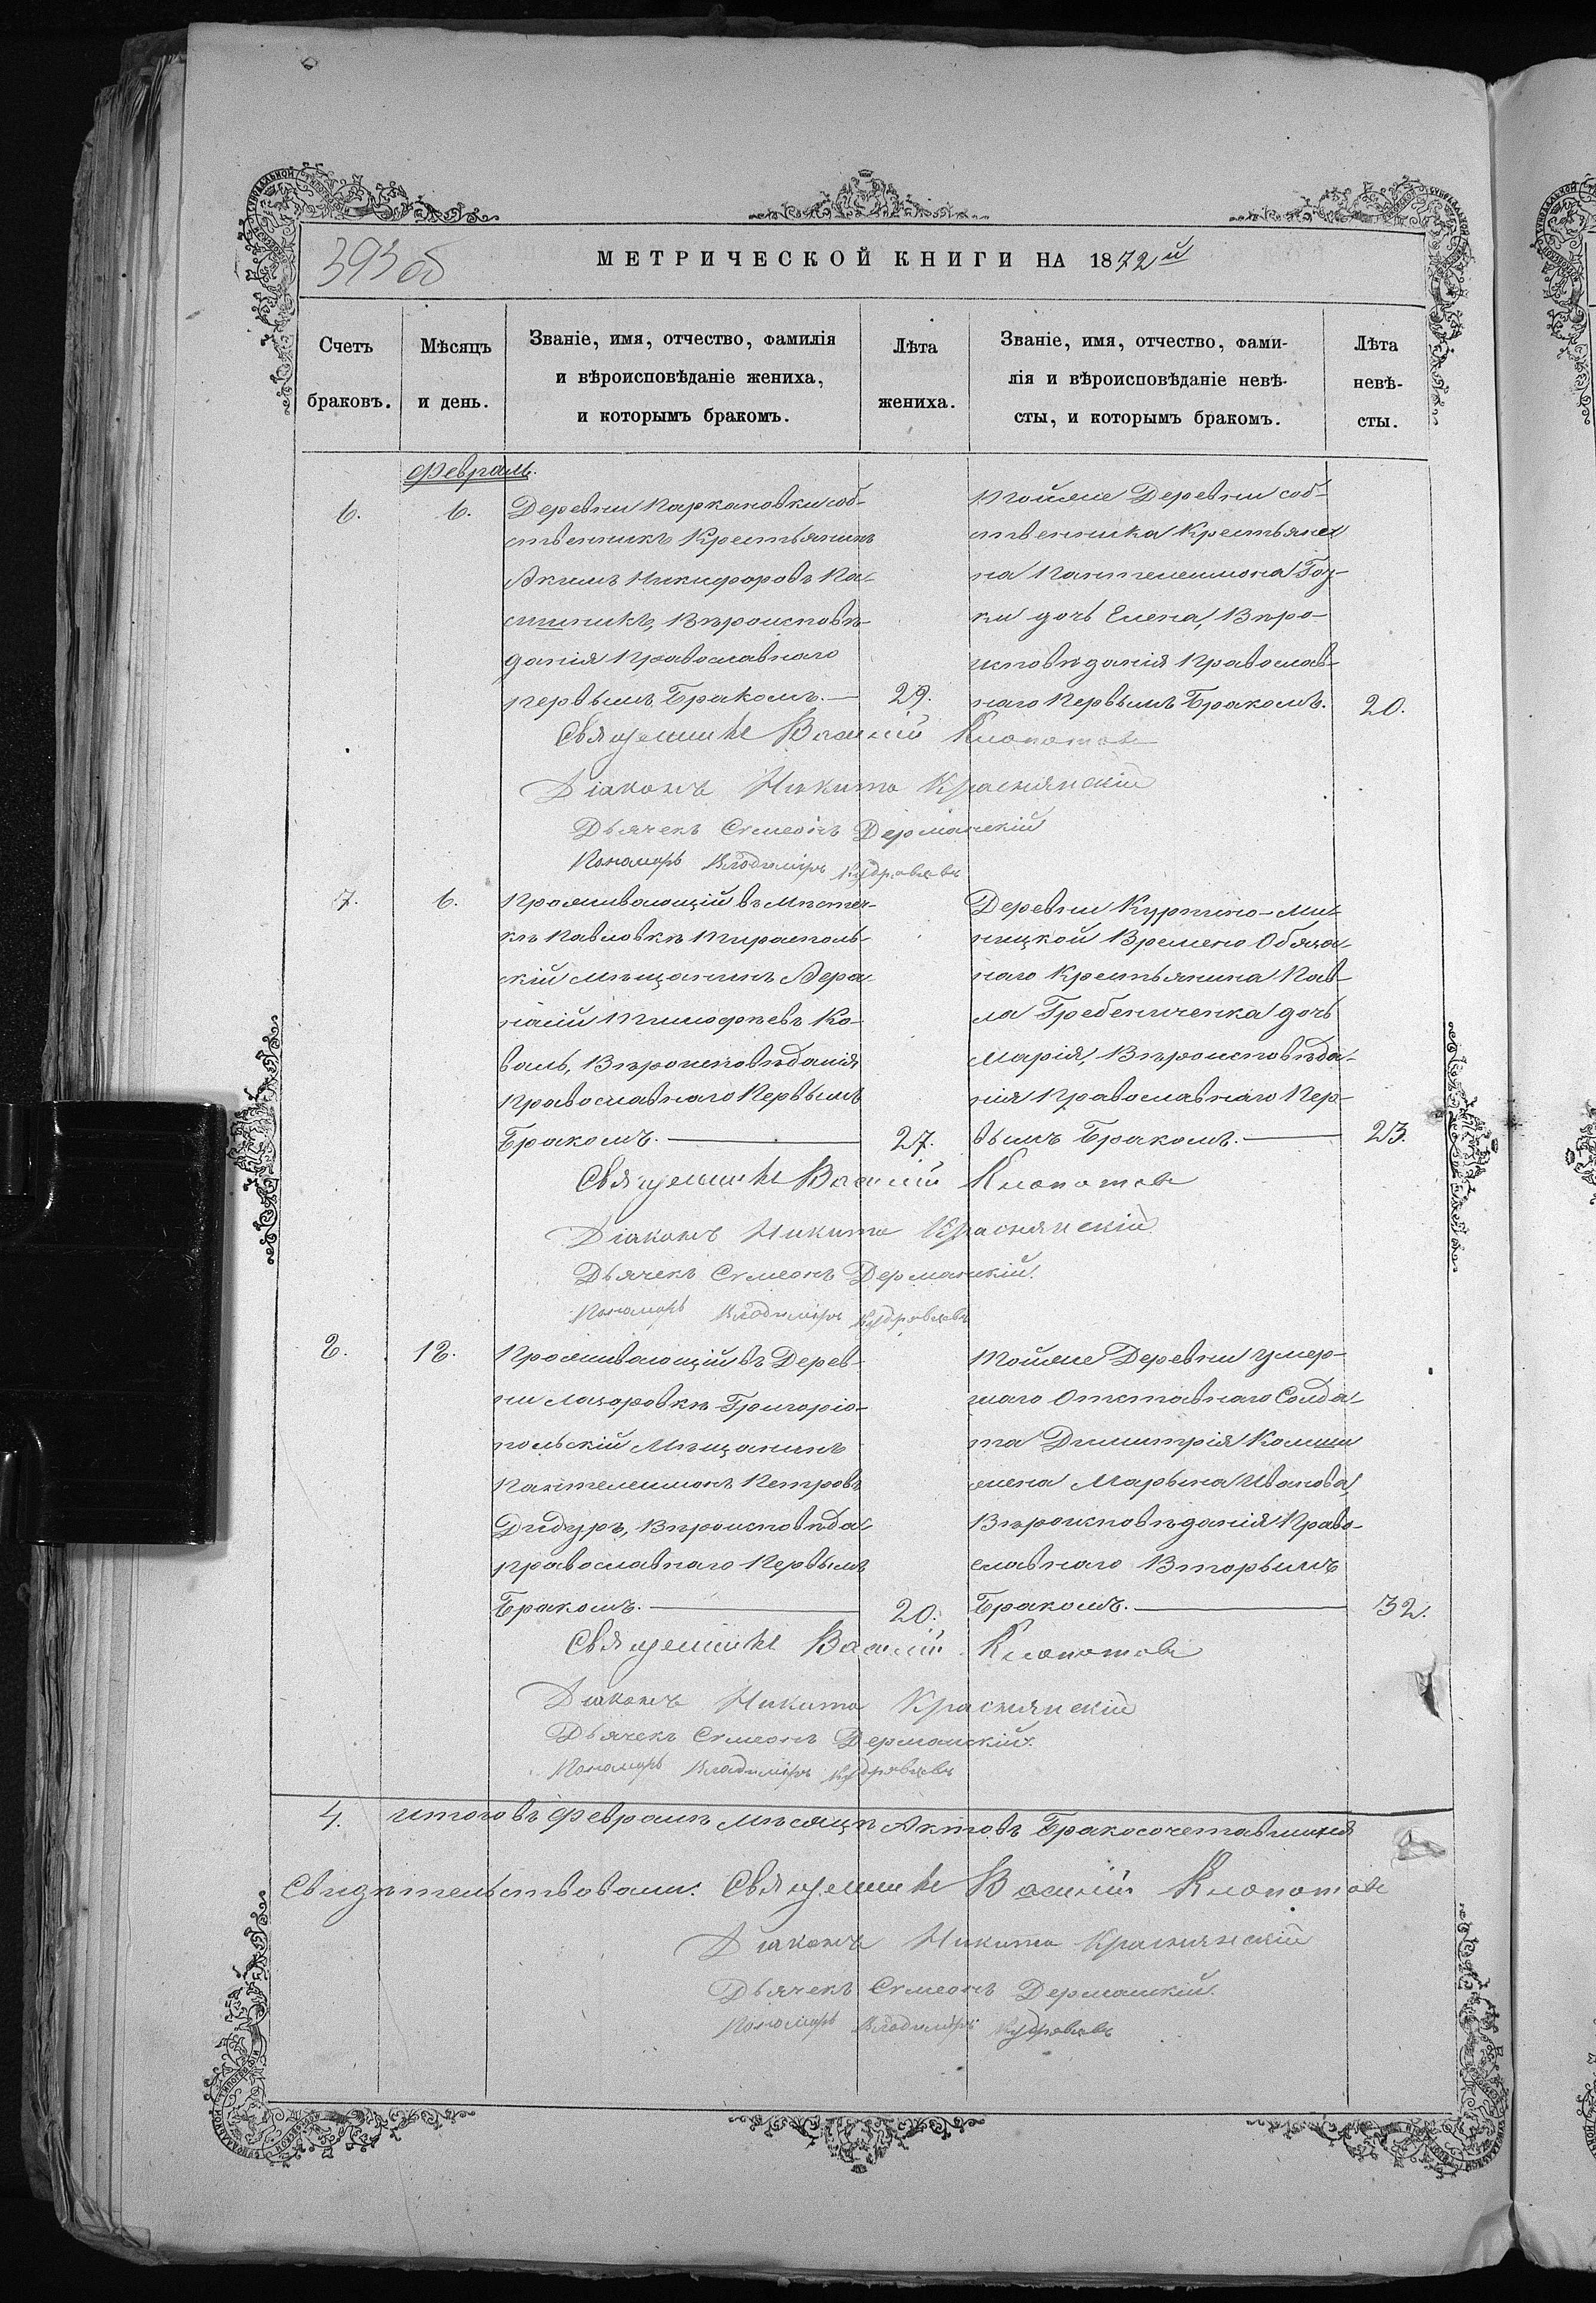 393 об
МЕТРИЧЕСКОЙ КНИГИ НА 1872й
Счетъ браковъ.
Мѣсяцъ и день.
Званіе, имя, отчество, фамилія
и вѣроисповѣданіе жениха,
и которымъ бракомъ.
Лѣта жениха.
Званіе, имя, отчество, фами-
лія и вѣроисповѣданіе невѣ-
сты, и которымъ бракомъ.
Лѣта невѣ-
сты.
Февраль.
6.
6.
Деревни Паркановки соб-
ственникъ Крестьянинъ
Акимъ Никифоровъ Па-
сишникъ, Вѣроисповѣ-
данія Православнаго
первымъ Бракомъ.—
29.
Тойже Деревни соб-
ственника Крестьяни
на Пантелеимона Гоз-
ки дочь Елена, Вѣро-
исповѣданія Православ-
наго Первымъ Бракомъ.
20.
Священникъ Василій Клопотовъ
Діаконъ Никита Краснянскій
Дьячекъ Симеонъ Дерманскій
Пономарь Владиміръ Кудрявцевъ
7.
6.
Проживающій въ Мѣстеч-
кѣ Павловкѣ Тирасполь-
скій мѣщанинъ Афа-
насій Тимофѣевъ Ко-
валь, Вѣроисповѣданія
Православнаго Первымъ
Бракомъ.
27.
Деревни Куртино-Ми-
ницкой Времено Обяза-
наго Крестьянина Пав-
ла Гребениченка дочь
Марія, Вѣроисповѣда-
нія Православнаго Пер-
вымъ Бракомъ.
23.
Священникъ Василій Клопотовъ
Діаконъ Никита Краснянскій
Дьячекъ Симеонъ Дерманскій.
Пономарь Владиміръ Кудрявцевъ
8.
18.
Проживающій въ Дерев-
ни Лазоровкѣ Григоріо-
польскій Мѣщанинъ
Пантелеимонъ Петровъ
Дидуръ, Вѣроисповѣда-
православнаго Первымъ
Бракомъ.
20.
Тойже Деревни умер-
шаго Отставнаго Солда-
та Димитрія Колиши
жена Марьяна Иванова,
Вѣроисповѣданія Право-
славнаго Вторымъ
Бракомъ.
32.
Священникъ Василій Клопотовъ
Діаконъ Никита Краснянскій
Дьячекъ Симеонъ Дерманскій.
Пономарь Владиміръ Кудрявцевъ
4. итого въ Февралѣ Мѣсяцѣ Актовъ Бракосочетавшихся
Свидѣтельствовали: Священникъ Василій Клопотовъ
Діаконъ Никита Краснянскій
Дьячекъ Симеонъ Дерманскій.
Пономарь Владиміръ Кудрявцевъ